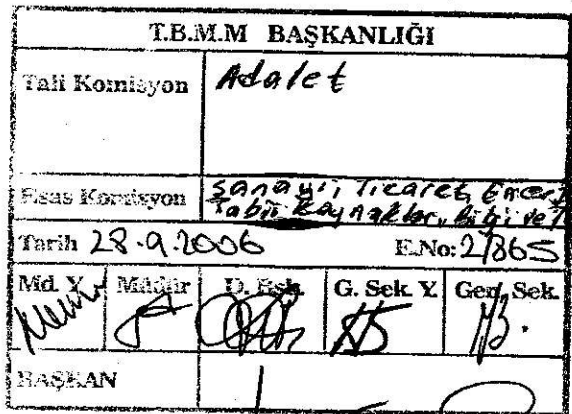 T.B.M.M BAŞKANLIĞI
Tali Komisyon Adalet
Esas Komisyon Sanayi, Ticaret, Enerji
Tabii Kaynaklar, Bilgi ve T
Tarih 28.9.2006 E.No: 2/865
Md. Y. Müdür D. Bşk. G. Sek. Y. Gen. Sek.
BAŞKAN